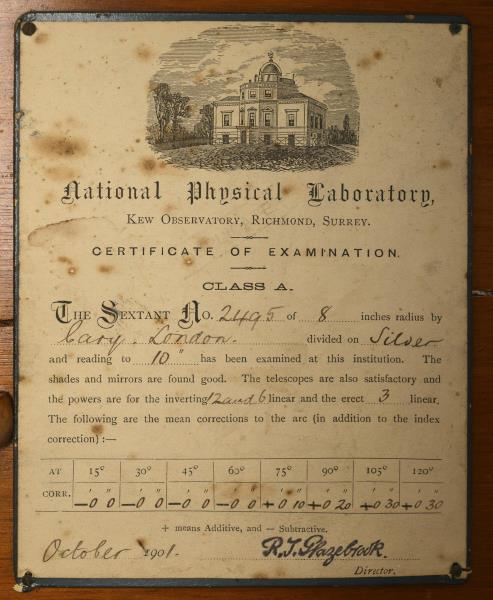 National Physical Laboratory,
KEW OBSERVATORY, RICHMOND, SURREY.
CERTIFICATE OF EXAMINATION.
CLASS A.
THE SEXTANT No. 2495 of 8 inches radius by
Cary. London. divided on Silver
and reading to 10" has been examined at this institution. The
shades and mirrors are found good. The telescopes are also satisfactory and
the powers are for the inverting 12 and 6 linear and the erect 3 linear.
The following are the mean corrections to the arc (in addition to the index
correction) :—
AT 15° 30° 45° 60° 75° 90° 105° 120°
CORR. ' " ' " ' " ' " ' " ' " ' " ' "
—0 0 —0 0 —0 0 —0 0 +0 10 +0 20 +0 30 +0 30
+ means Additive, and — Subtractive.
October 1901. R.T. Glazebrook.
Director.